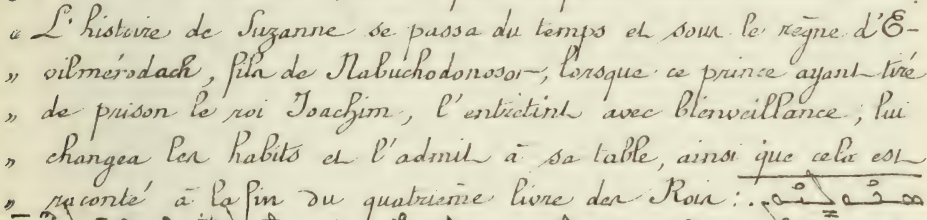 « L'histoire de Suzanne se passa du temps et sous le règne d'E-
» vilmérodach, fils de Nabuchodonosor, lorsque ce prince ayant tiré
» de prison le roi Joachim, l'entretint avec bienveillance, lui
» changea les habits et l'admit à sa table, ainsi que cela est
» raconté à la fin du quatrième livre des Rois :